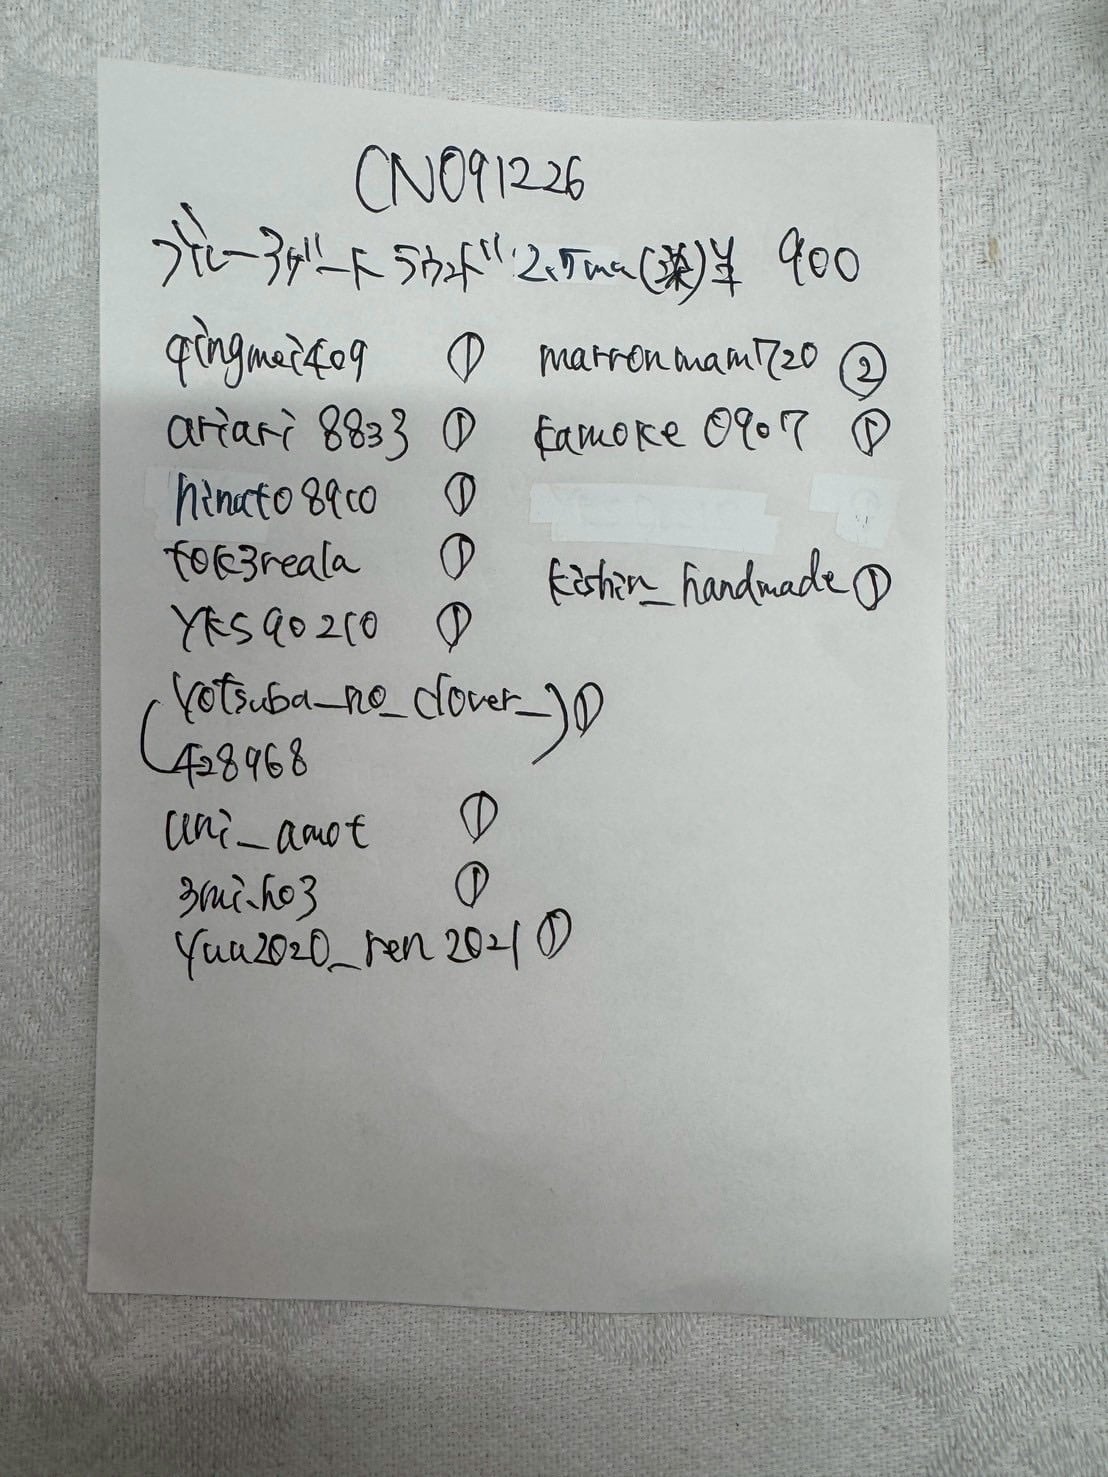 CN091226
ブルーアゲートラウンド 2.5mm(染)¥ 900
qingmei409 ①
ariari8833 ①
hinato8910 ①
tok3reala ①
YKS90210 ①
(yotsuba_no_clover_
428968) ①
uni_amot ①
3miho3 ①
yuu2020_ren2021 ①
marronmam720 ②
kamoke0907 ①
kishin_handmade ①